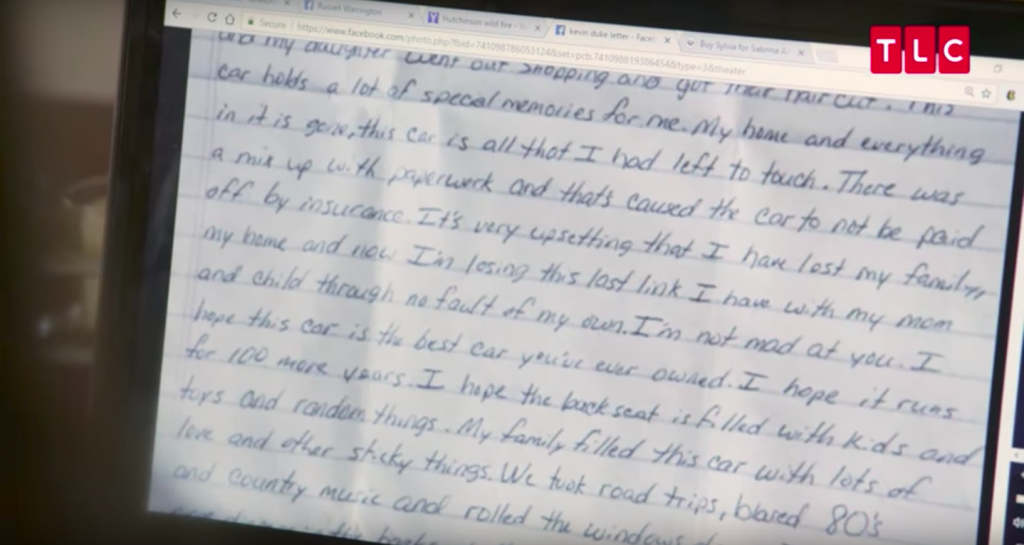 Russell Warrington
Hutchinson wild fire -
kevin duke letter - Face
Buy Sylvia for Sabrina
TLC
Secure https://www.facebook.com/photo.php?fbid=
&type=3&theater
and my daughter went out shopping and got their haircut. This
car holds a lot of special memories for me. My home and everything
in it is gone, this car is all that I had left to touch. There was
a mix up with paperwork and that's caused the car to not be paid
off by insurance. It's very upsetting that I have lost my family,
my home and now I'm losing this last link I have with my mom
and child through no fault of my own. I'm not mad at you. I
hope this car is the best car you've ever owned. I hope it runs
for 100 more years. I hope the back seat is filled with kids and
toys and random things. My family filled this car with lots of
love and other sticky things. We took road trips, blared 80's
and country music and rolled the windows